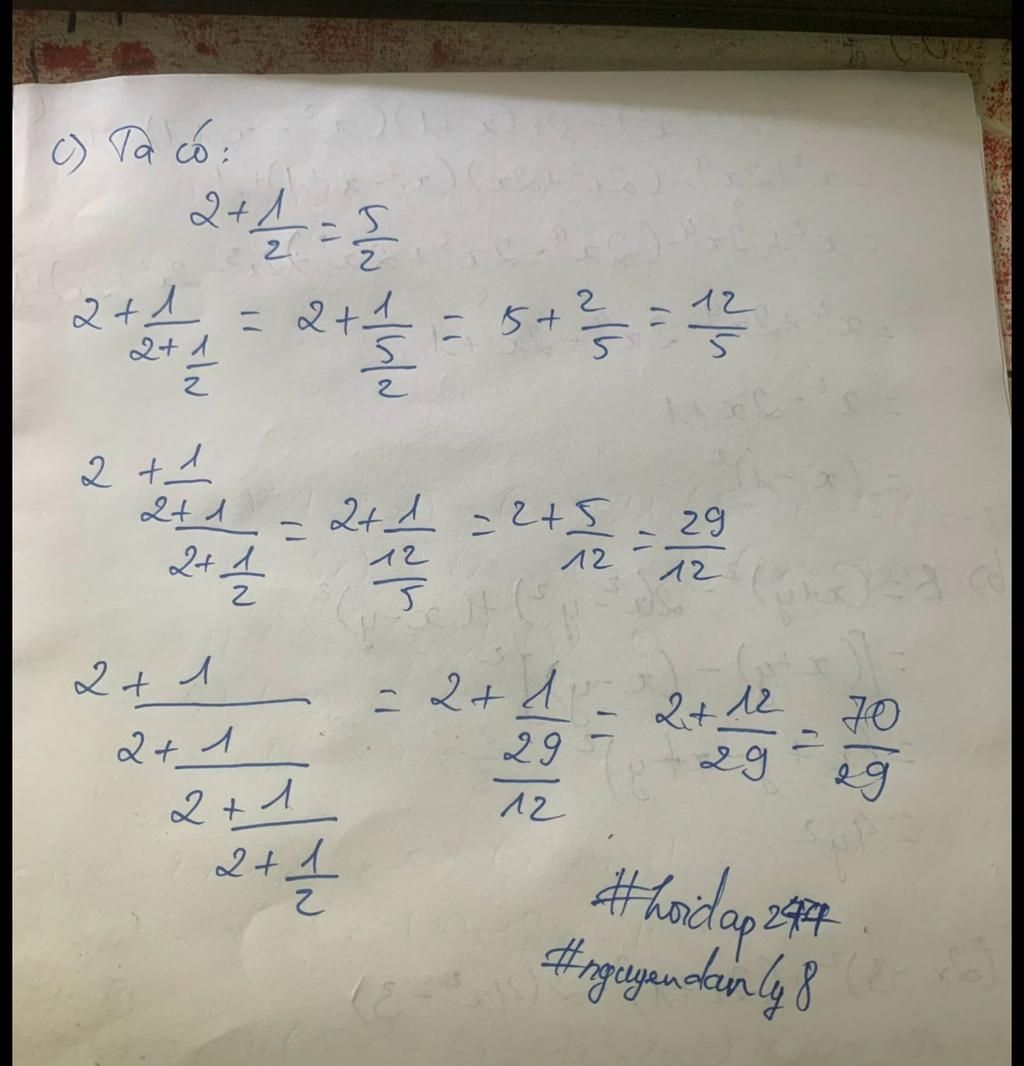 c) Ta có:
2 + 1/2 = 5/2
2 + 1/(2 + 1/2) = 2 + 1/(5/2) = 5 + 2/5 = 12/5
2 + 1/(2 + 1/(2 + 1/2)) = 2 + 1/(12/5) = 2 + 5/12 = 29/12
2 + 1/(2 + 1/(2 + 1/(2 + 1/2))) = 2 + 1/(29/12) = 2 + 12/29 = 70/29
#hoidap247
#nguyendanly8